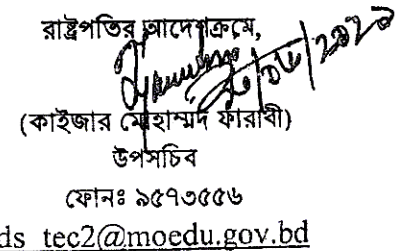 রাষ্ট্রপতির আদেশক্রমে,
(কাইজার মোহাম্মদ ফারাবী)
উপসচিব
ফোনঃ ৯৫৭৩৫৫৬
ds_tec2@moedu.gov.bd